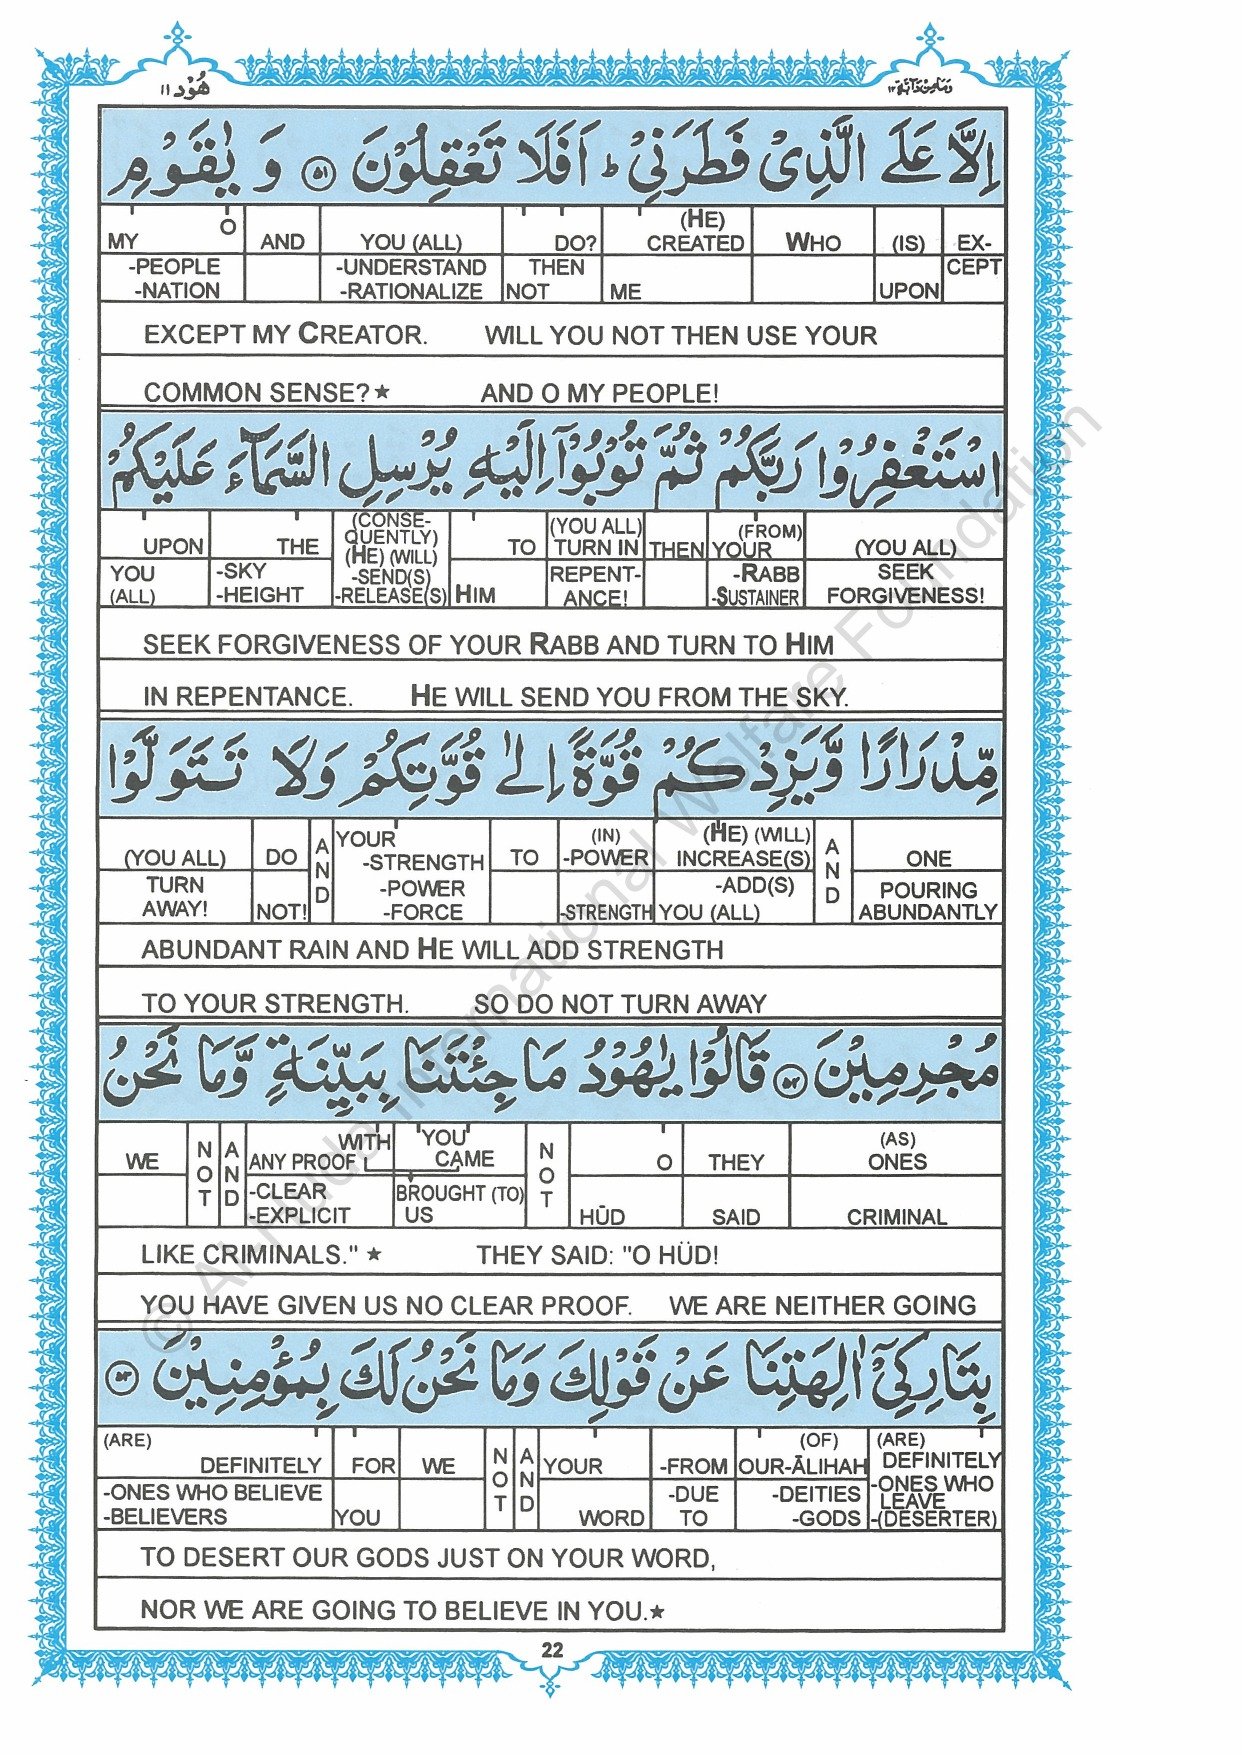 هُوْد ۱۱
وَمَا مِنْ دَآبَّةٍ ۱۲
اِلَّا عَلَى الَّذِىْ فَطَرَنِىْ ؕ اَفَلَا تَعْقِلُوْنَ ۵۱ وَ يٰقَوْمِ
MY O AND YOU (ALL) DO? (HE) CREATED WHO (IS) EX-
-PEOPLE -UNDERSTAND THEN CEPT
-NATION -RATIONALIZE NOT ME UPON
EXCEPT MY CREATOR. WILL YOU NOT THEN USE YOUR
COMMON SENSE?★ AND O MY PEOPLE!
اسْتَغْفِرُوْا رَبَّكُمْ ثُمَّ تُوْبُوْٓا اِلَيْهِ يُرْسِلِ السَّمَآءَ عَلَيْكُمْ
UPON THE (CONSE-QUENTLY) (HE) (WILL) TO (YOU ALL) TURN IN THEN (FROM) YOUR (YOU ALL)
YOU (ALL) -SKY -HEIGHT -SEND(S) -RELEASE(S) HIM REPENT-ANCE! -RABB -SUSTAINER SEEK FORGIVENESS!
SEEK FORGIVENESS OF YOUR RABB AND TURN TO HIM
IN REPENTANCE. HE WILL SEND YOU FROM THE SKY.
مِّدْرَارًا وَّيَزِدْكُمْ قُوَّةً اِلٰى قُوَّتِكُمْ وَلَا تَتَوَلَّوْا
(YOU ALL) DO AND YOUR -STRENGTH TO (IN) -POWER (HE) (WILL) INCREASE(S) AND ONE
TURN AWAY! NOT! -POWER -FORCE -STRENGTH -ADD(S) YOU (ALL) POURING ABUNDANTLY
ABUNDANT RAIN AND HE WILL ADD STRENGTH
TO YOUR STRENGTH. SO DO NOT TURN AWAY
مُجْرِمِيْنَ ۵۲ قَالُوْا يٰهُوْدُ مَا جِئْتَنَا بِبَيِّنَةٍ وَّمَا نَحْنُ
WE NOT AND WITH ANY PROOF YOU CAME NOT O THEY (AS) ONES
-CLEAR -EXPLICIT BROUGHT (TO) US HŪD SAID CRIMINAL
LIKE CRIMINALS." ★ THEY SAID: "O HÜD!
YOU HAVE GIVEN US NO CLEAR PROOF. WE ARE NEITHER GOING
بِتَارِكِىْٓ اٰلِهَتِنَا عَنْ قَوْلِكَ وَمَا نَحْنُ لَكَ بِمُؤْمِنِيْنَ ۵۳
(ARE) DEFINITELY FOR WE NOT AND YOUR -FROM (OF) OUR-ĀLIHAH (ARE) DEFINITELY
-ONES WHO BELIEVE -BELIEVERS YOU WORD -DUE TO -DEITIES -GODS -ONES WHO LEAVE -(DESERTER)
TO DESERT OUR GODS JUST ON YOUR WORD,
NOR WE ARE GOING TO BELIEVE IN YOU.★
22
© Al-Huda International Welfare Foundation